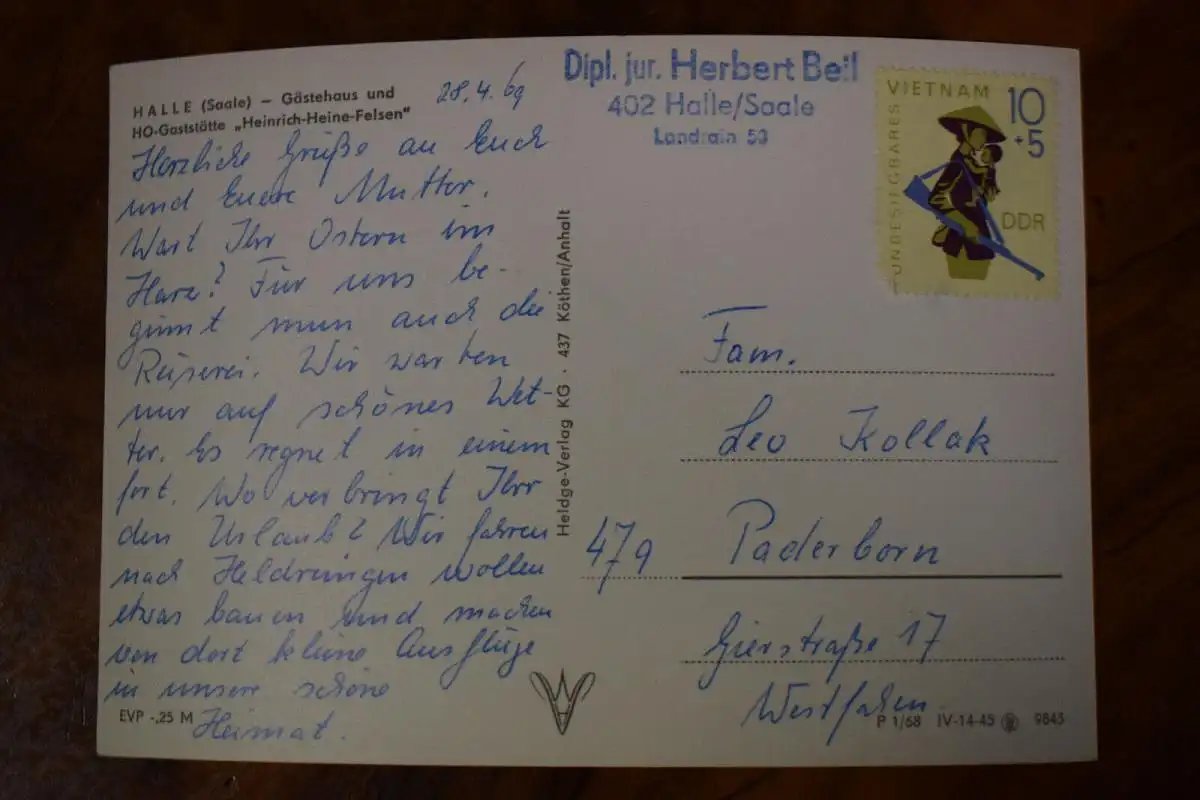 HALLE (Saale) – Gästehaus und
HO-Gaststätte „Heinrich-Heine-Felsen"
28.4.69
Herzliche Grüße an Euch
und Euere Mutter.
Wart Ihr Ostern im
Harz? Für uns be-
ginnt nun auch die
Reiserei. Wir warten
nur auf schönes Wet-
ter. Es regnet in einem
fort. Wo verbringt Ihr
den Urlaub? Wir fahren
nach Heldrungen wollen
etwas bauen und machen
von dort kleine Ausflüge
in unsere schöne
Heimat.
EVP -,25 M
Heldge-Verlag KG · 437 Köthen/Anhalt
Dipl. jur. Herbert Beil
402 Halle/Saale
Landrain 53
VIETNAM
UNBESIEGBARES
10
+5
DDR
Fam.
Leo Kollak
479 Paderborn
Gierstraße 17
Westfalen
P 1/68 IV-14-45 9845